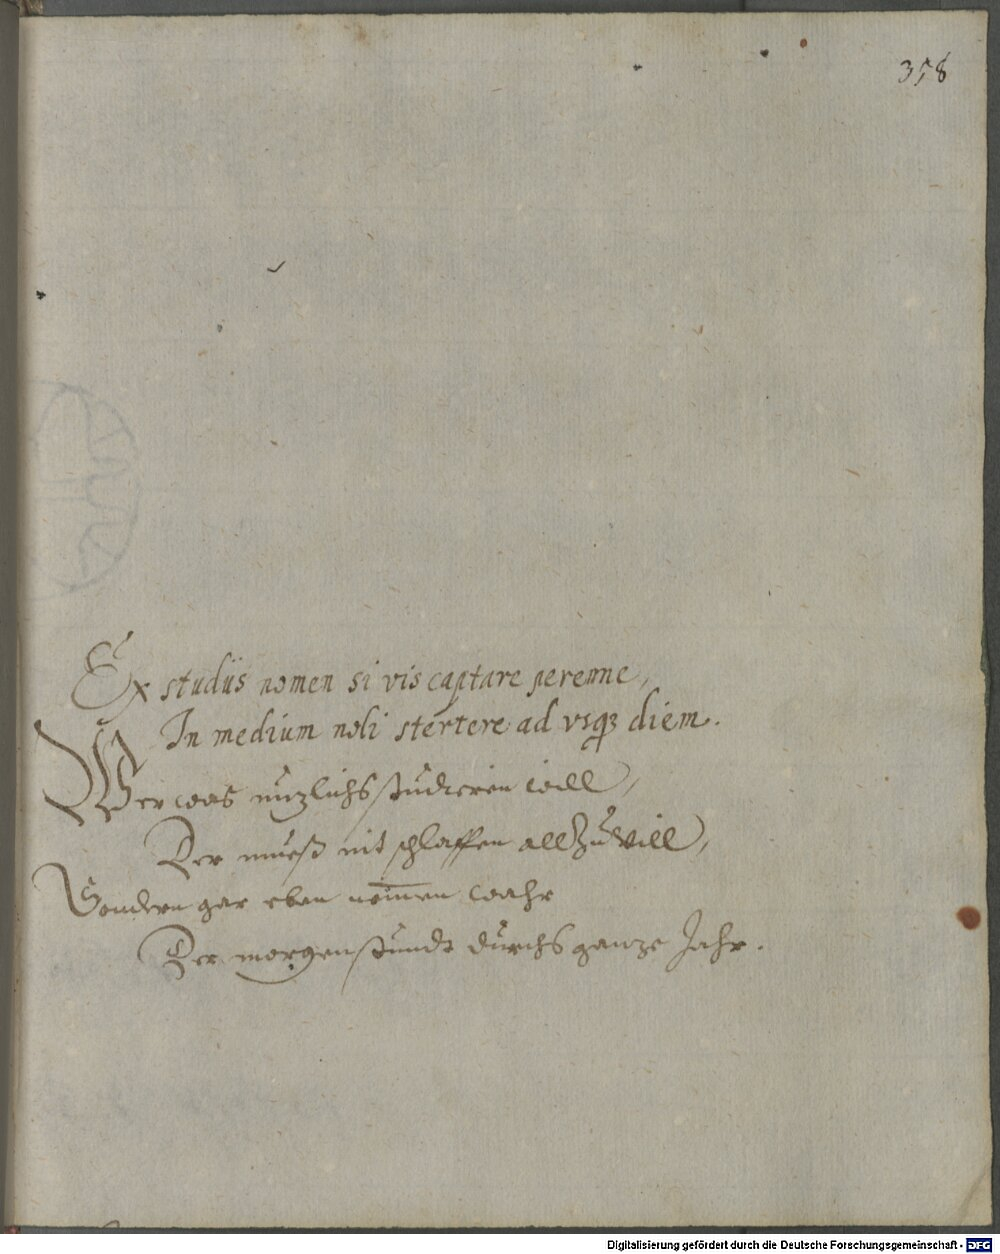 358
Ex studiis nomen si vis captare perenne,
In medium noli stertere ad vsqꝫ diem.
Wer was nutzlichs studieren will,
Der mueß nit schlaffen all Zu vill,
Sondern gar eben nemen wahr
Der morgenstundt durchs ganze Jahr.
Digitalisierung gefördert durch die Deutsche Forschungsgemeinschaft - DFG